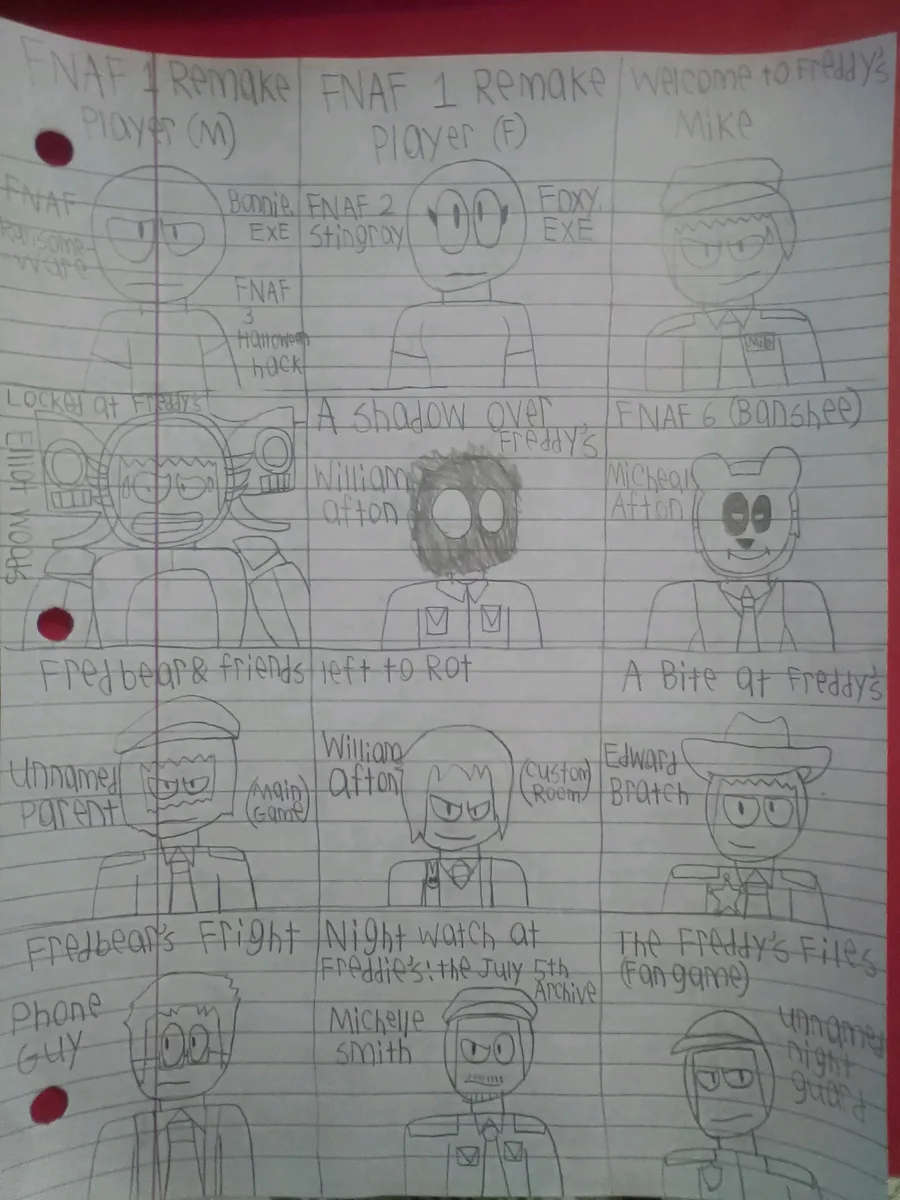 FNAF 1 Remake
Player (M)
FNAF
Ransome-
ware
Bonnie.
EXE
FNAF
3
Halloween
hack
FNAF 1 Remake
Player (F)
FNAF 2
Stingray
Foxy.
EXE
Welcome to Freddy's
Mike
Mike
Locked at Freddy's
Elliot Woods
A Shadow over
Freddy's
William
afton
FNAF 6 (Banshee)
Micheal
Afton
Fredbear & friends
Unnamed
Parent
(Main
Game)
left to Rot
William
afton
(Custom
Room)
A Bite at Freddy's
Edward
Bratch
Fredbear's Fright
Phone
Guy
Night watch at
Freddie's: the July 5th
Archive
Michelle
Smith
The Freddy's Files
(Fan game)
unnamed
night
guard